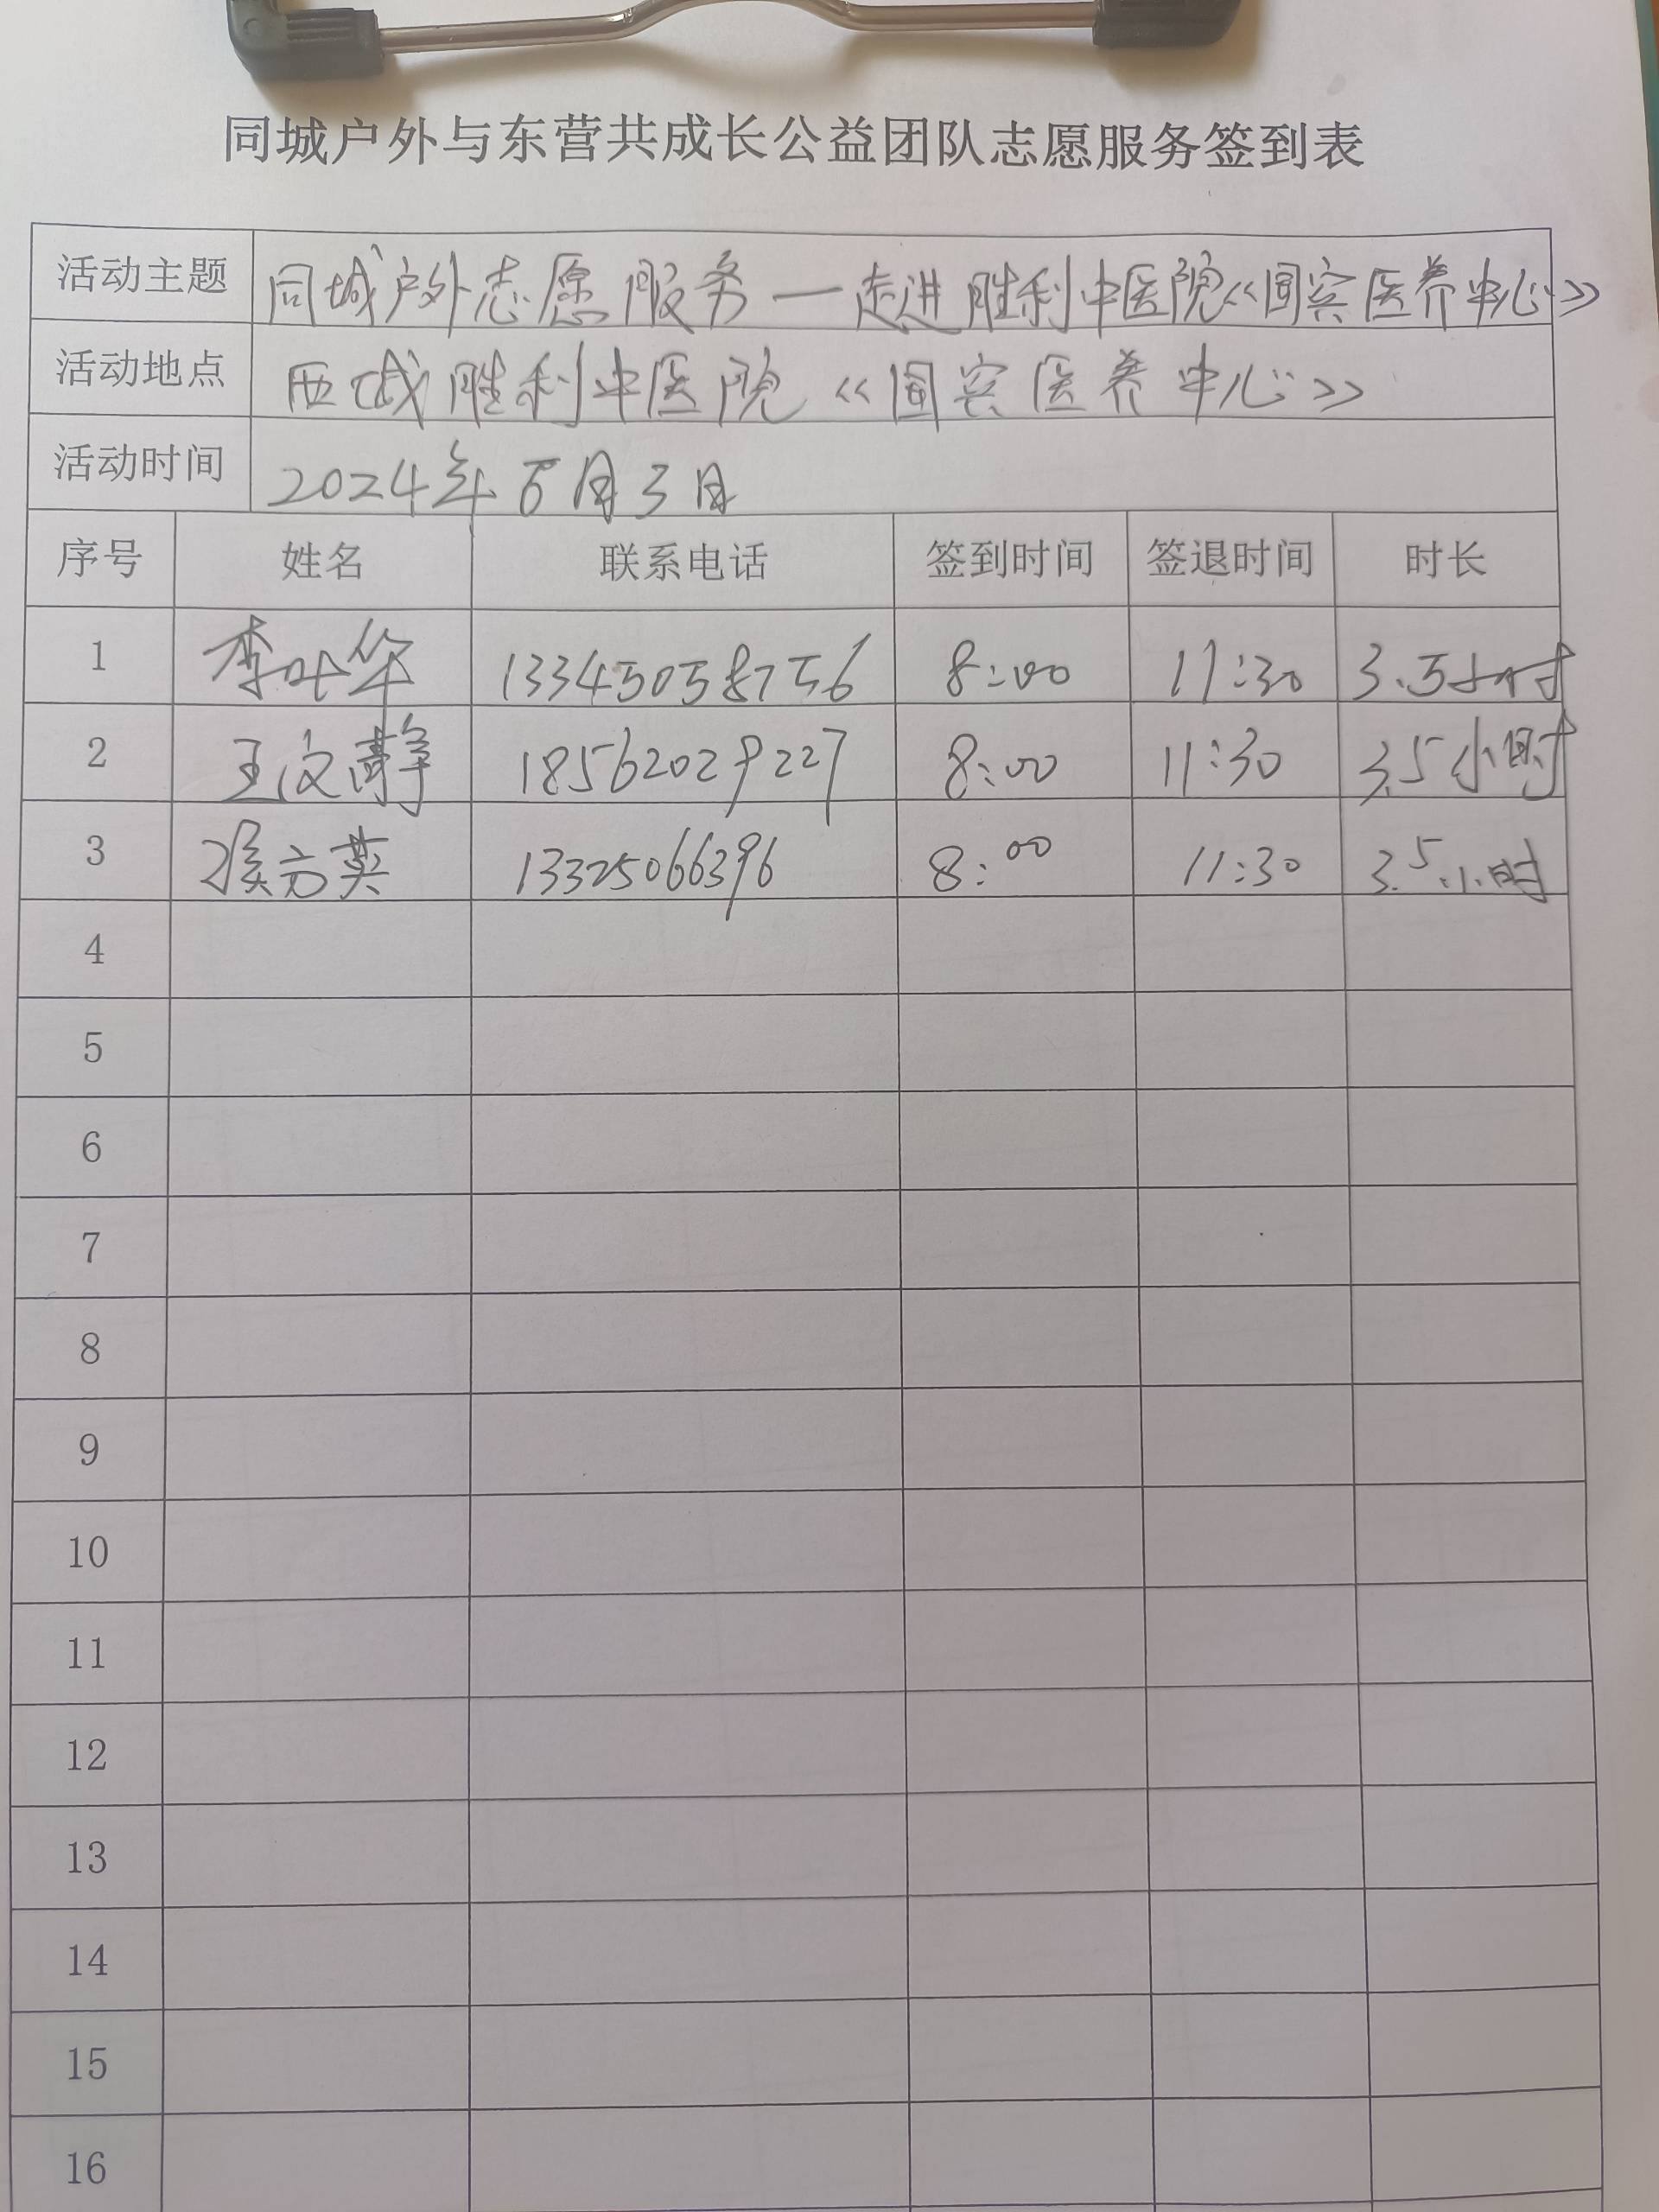 同城户外与东营共成长公益团队志愿服务签到表
活动主题 同城户外志愿服务一走进胜利中医院《国宾医养中心》
活动地点 西城胜利中医院《国宾医养中心》
活动时间 2024年5月3日
序号 姓名 联系电话 签到时间 签退时间 时长
1 李叶华 13345058756 8:00 11:30 3.5小时
2 王文静 18562029227 8:00 11:30 3.5小时
3 侯方英 13325066396 8:00 11:30 3.5小时
4
5
6
7
8
9
10
11
12
13
14
15
16